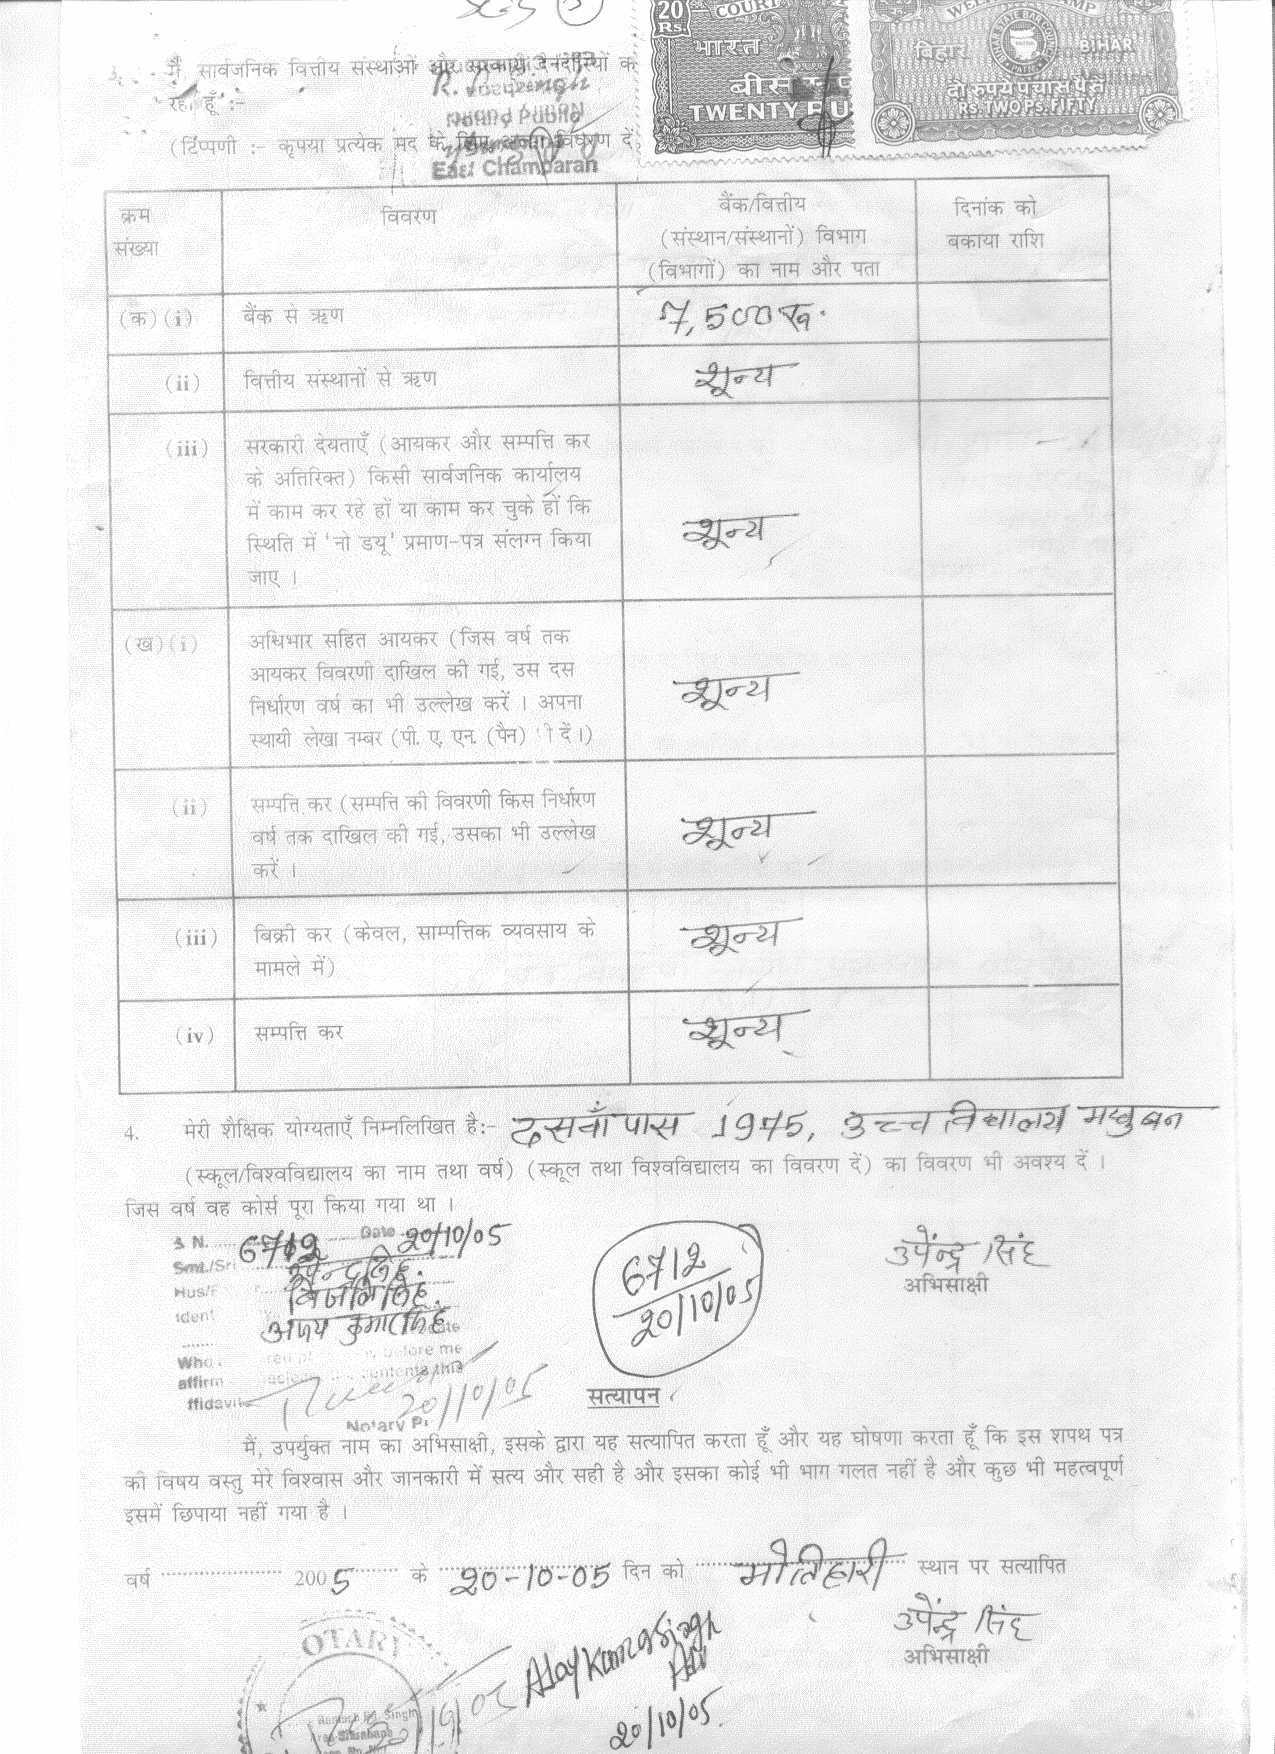 COURT
20
Rs.
भारत
बीस
TWENTY RU
बिहार
BIHAR
दो रुपये पचास पैसे
RS. TWO PS. FIFTY
मैं, सार्वजनिक वित्तीय संस्थाओं और सरकारी देनदारियों
रहा हूँ :-
Notary Public
East Champaran
(टिप्पणी :- कृपया प्रत्येक मद के लिए अलग विवरण दें
क्रम संख्या
विवरण
बैंक/वित्तीय
(संस्थान/संस्थानों) विभाग
(विभागों) का नाम और पता
दिनांक को
बकाया राशि
(क) (i) बैंक से ऋण 7,500 रु.
(ii) वित्तीय संस्थानों से ऋण शून्य
(iii) सरकारी देयताएँ (आयकर और सम्पत्ति कर
के अतिरिक्त) किसी सार्वजनिक कार्यालय
में काम कर रहे हों या काम कर चुके हों कि
स्थिति में 'नो डयू' प्रमाण-पत्र संलग्न किया
जाए ।
शून्य
(ख) (i) अधिभार सहित आयकर (जिस वर्ष तक
आयकर विवरणी दाखिल की गई, उस दस
निर्धारण वर्ष का भी उल्लेख करें । अपना
स्थायी लेखा नम्बर (पी. ए. एन. (पैन) दें।)
शून्य
(ii) सम्पत्ति कर (सम्पत्ति की विवरणी किस निर्धारण
वर्ष तक दाखिल की गई, उसका भी उल्लेख
करें ।
शून्य
(iii) बिक्री कर (केवल, साम्पत्तिक व्यवसाय के
मामले में)
शून्य
(iv) सम्पत्ति कर शून्य
4. मेरी शैक्षिक योग्यताएँ निम्नलिखित है:- दसवाँ पास 1975, उच्च विद्यालय मधुबन
(स्कूल/विश्वविद्यालय का नाम तथा वर्ष) (स्कूल तथा विश्वविद्यालय का विवरण दें) का विवरण भी अवश्य दें ।
जिस वर्ष वह कोर्स पूरा किया गया था ।
S N. 6712 Date 20/10/05
Smt./Sri उपेन्द्र सिंह
Hus/F
Ident अजय कुमार सिंह
before me
affirm contents this
ffidavit
20/10/05
Notary P
6712
20/10/05
उपेंन्द्र सिंह
अभिसाक्षी
सत्यापन
मैं, उपर्युक्त नाम का अभिसाक्षी, इसके द्वारा यह सत्यापित करता हूँ और यह घोषणा करता हूँ कि इस शपथ पत्र
की विषय वस्तु मेरे विश्वास और जानकारी में सत्य और सही है और इसका कोई भी भाग गलत नहीं है और कुछ भी महत्वपूर्ण
इसमें छिपाया नहीं गया है ।
वर्ष 2005 के 20-10-05 दिन को मोतिहारी स्थान पर सत्यापित
उपेंन्द्र सिंह
अभिसाक्षी
OTARY
Singh
Ajay Kumar Singh
Adv
20/10/05.